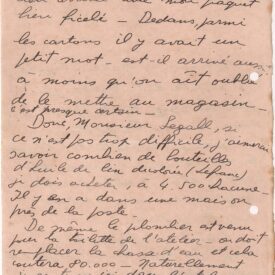 mon paquet
bien ficelé - Dedans, parmi
les cartons il y avait un
petit mot - est-il arrivé aussi
à moins qu'on ait oublié
de le mettre au magasin -
c'est presque certain -
Donc, Monsieur Legall, si
ce n'est pas trop difficile, j'aimerais
savoir combien de bouteilles
d'huile de lin (Lefranc)
je dois acheter, à 4.500 chacune
Il y en a dans une maison
près de la poste.
De même le plombier est venu
pour toilette de l'atelier - on doit
remplacer la chasse d'eau et cela
coûtera 80.000 - Naturellement